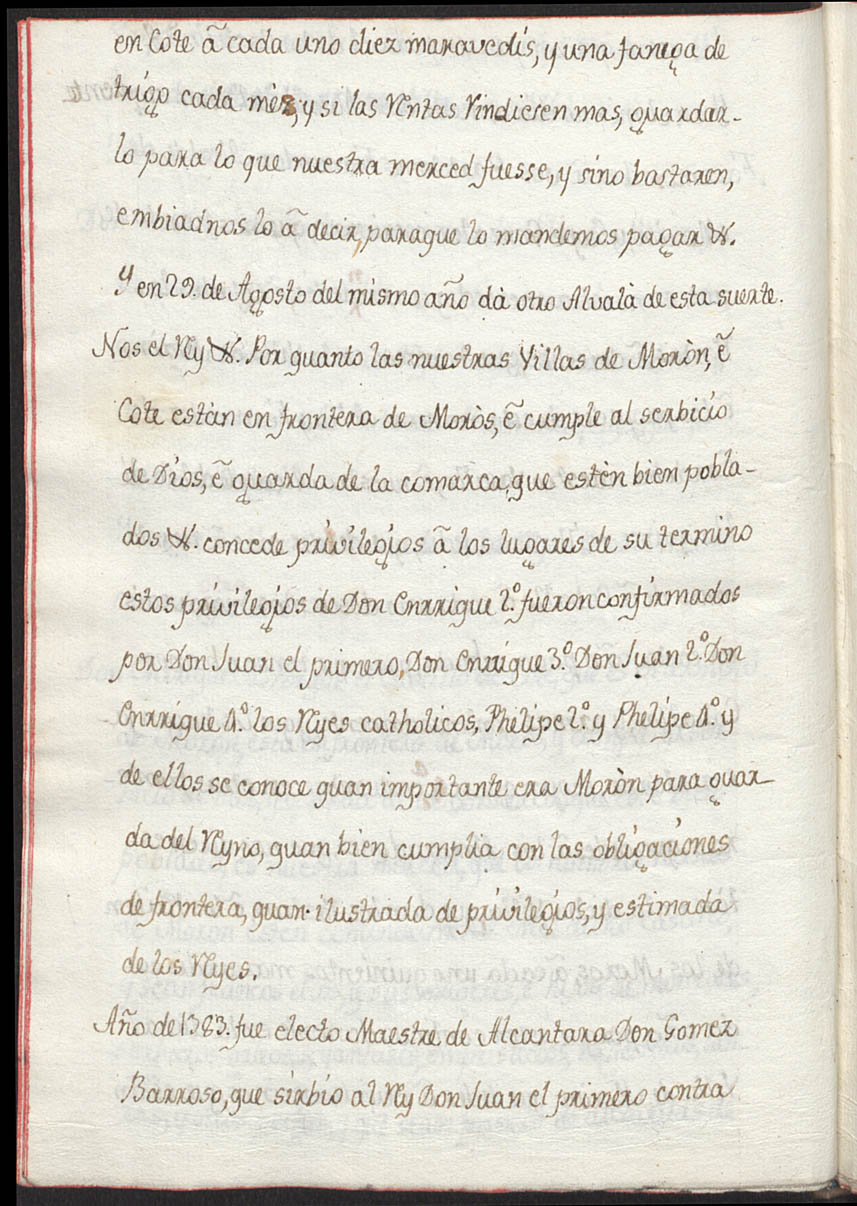 en Cote ã cada uno diez maravedís, y una fanega de
trígo cada mès, y si las Rentas Rindiesen mas, guardar-
lo para lo que nuestra merced fuesse, y sino bastaren,
embiadnos lo ã decir, paraque lo mandemos pagar &.
Y en 29. de Agosto del mismo año dà otro Alvalà de esta suerte.
Nos el Rey &. Por quanto las nuestras Villas de Moròn, ẽ
Cote estàn en frontera de Moròs, ẽ cumple al serbicio
de Dios, ẽ guarda de la comarca, que estèn bien pobla-
dos &. concede privilegios ã los lugares de su termino
estos privilegios de Don Enrrique 2.º fueron confirmados
por Don Juan el primero, Don Enrrique 3.º Don Juan 2.º Don
Enrrique 4.º los Reyes catholicos, Phelipe 2.º y Phelipe 4.º y
de ellos se conoce quan importante era Moròn para guar-
da del Reyno, quan bien cumplia con las obligaciones
de frontera, quan ilustrada de privilegios, y estimada
de los Reyes.
Año de 1383. fue electo Maestre de Alcantara Don Gomez
Barroso, que sirbio al Rey Don Juan el primero contra